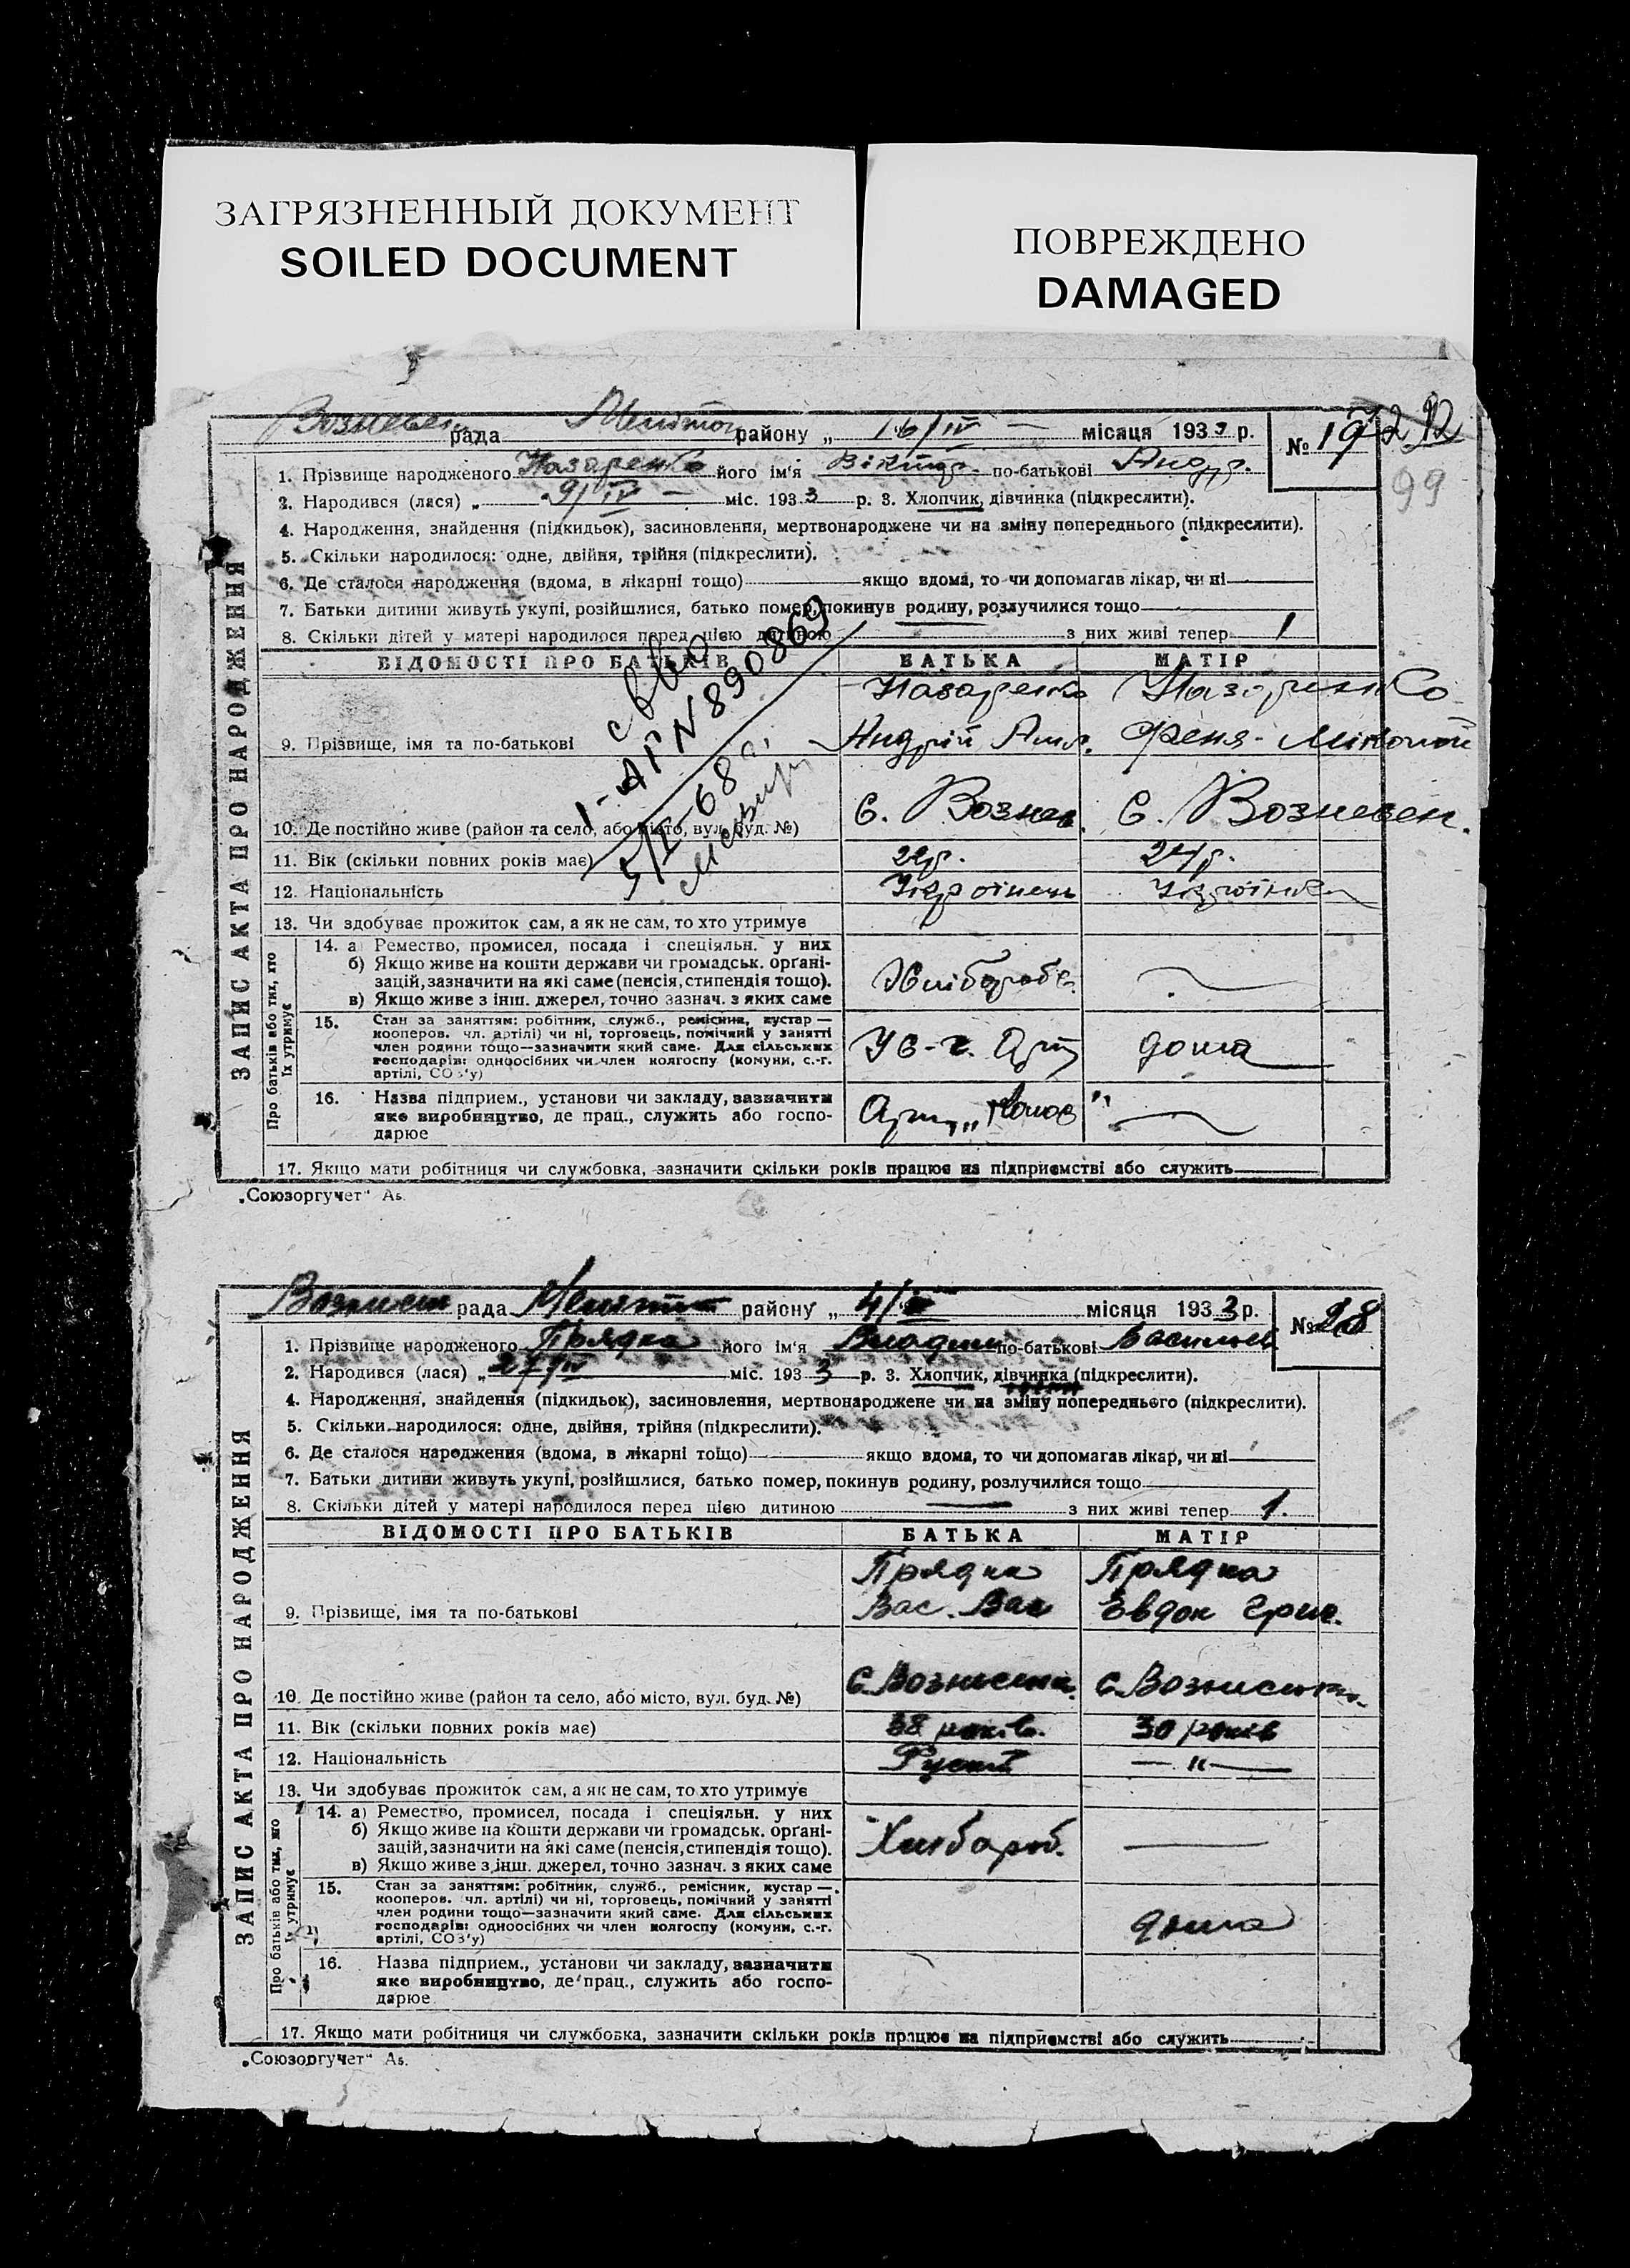 ЗАГРЯЗНЕННЫЙ ДОКУМЕНТ
SOILED DOCUMENT
ПОВРЕЖДЕНО
DAMAGED
рада району „ 16/IV – місяця 1933 р. № 19
99
1. Прізвище народженого Назаренко його ім'я Віктор. по-батькові Андр.
2. Народився (лася) „ 9/IV – міс. 1933 р. 3. Хлопчик, дівчинка (підкреслити).
4. Народження, знайдення (підкидьок), засиновлення, мертвонароджене чи на зміну попереднього (підкреслити).
5. Скільки народилося: одне, двійня, трійня (підкреслити).
6. Де сталося народження (вдома, в лікарні тощо) якщо вдома, то чи допомагав лікар, чи ні
7. Батьки дитини живуть укупі, розійшлися, батько помер, покинув родину, розлучилися тощо
8. Скільки дітей у матері народилося перед цією дитиною з них живі тепер 1
ВІДОМОСТІ ПРО БАТЬКІВ БАТЬКА МАТІР
Назаренко Назаренко
9. Прізвище, імя та по-батькові Андрій Феня
10. Де постійно живе (район та село, або місто, вул. буд. №) С. Вознес. С. Вознесен.
11. Вік (скільки повних років має) 24р.
12. Національність Українець Українка
13. Чи здобуває прожиток сам, а як не сам, то хто утримує
14. а) Ремество, промисел, посада і спеціяльн. у них
б) Якщо живе на кошти держави чи громадськ. орґані-
зацій, зазначити на які саме (пенсія, стипендія тощо). Хліборобс.
в) Якщо живе з інш. джерел, точно зазнач. з яких саме
15. Стан за заняттям: робітник, служб., ремісник, кустар —
кооперов. чл. артілі) чи ні, торговець, помічний у занятті
член родини тощо—зазначити який саме. Для сільських
господарів: одноосібних чи член колгоспу (комуни, с.-г. дома
артілі, СОЗ'у)
16. Назва підприєм., установи чи закладу, зазначити
яке виробництво, де прац., служить або госпо-
дарює
17. Якщо мати робітниця чи службовка, зазначити скільки років працює на підприємстві або служить
„Союзоргучет" А5.
ЗАПИС АКТА ПРО НАРОДЖЕННЯ
Про батьків або тих, хто
їх утримує
1-АГ N 890869
рада району „ місяця 1933 р. № 28
1. Прізвище народженого Прядка його ім'я Владим по-батькові Васильев
2. Народився (лася) „ 27/IV міс. 1933 р. 3. Хлопчик, дівчинка (підкреслити).
4. Народження, знайдення (підкидьок), засиновлення, мертвонароджене чи на зміну попереднього (підкреслити).
5. Скільки народилося: одне, двійня, трійня (підкреслити).
6. Де сталося народження (вдома, в лікарні тощо) якщо вдома, то чи допомагав лікар, чи ні
7. Батьки дитини живуть укупі, розійшлися, батько помер, покинув родину, розлучилися тощо
8. Скільки дітей у матері народилося перед цією дитиною — з них живі тепер 1.
ВІДОМОСТІ ПРО БАТЬКІВ БАТЬКА МАТІР
Прядка Прядка
9. Прізвище, імя та по-батькові Вас. Вас Евдок Григ.
10. Де постійно живе (район та село, або місто, вул. буд. №)
11. Вік (скільки повних років має) 38 років. 30 років
12. Національність Руский — " —
13. Чи здобуває прожиток сам, а як не сам, то хто утримує
14. а) Ремество, промисел, посада і спеціяльн. у них
б) Якщо живе на кошти держави чи громадськ. орґані-
зацій, зазначити на які саме (пенсія, стипендія тощо). Хлібороб. —
в) Якщо живе з інш. джерел, точно зазнач. з яких саме
15. Стан за заняттям: робітник, служб., ремісник, кустар —
кооперов. чл. артілі) чи ні, торговець, помічний у занятті
член родини тощо—зазначити який саме. Для сільських
господарів: одноосібних чи член колгоспу (комуни, с.-г. дома
артілі, СОЗ'у)
16. Назва підприєм., установи чи закладу, зазначити
яке виробництво, де прац., служить або госпо-
дарює
17. Якщо мати робітниця чи службовка, зазначити скільки років працює на підприємстві або служить
„Союзоргучет" А5.
ЗАПИС АКТА ПРО НАРОДЖЕННЯ
Про батьків або тих, хто
їх утримує